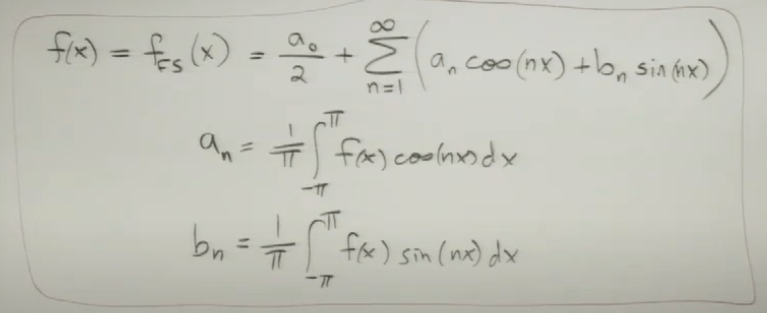 f(x) = f_FS(x) = a₀/2 + ∑_{n=1}^{∞} (aₙ cos(nx) + bₙ sin(nx))
aₙ = 1/π ∫_{-π}^{π} f(x) cos(nx) dx
bₙ = 1/π ∫_{-π}^{π} f(x) sin(nx) dx